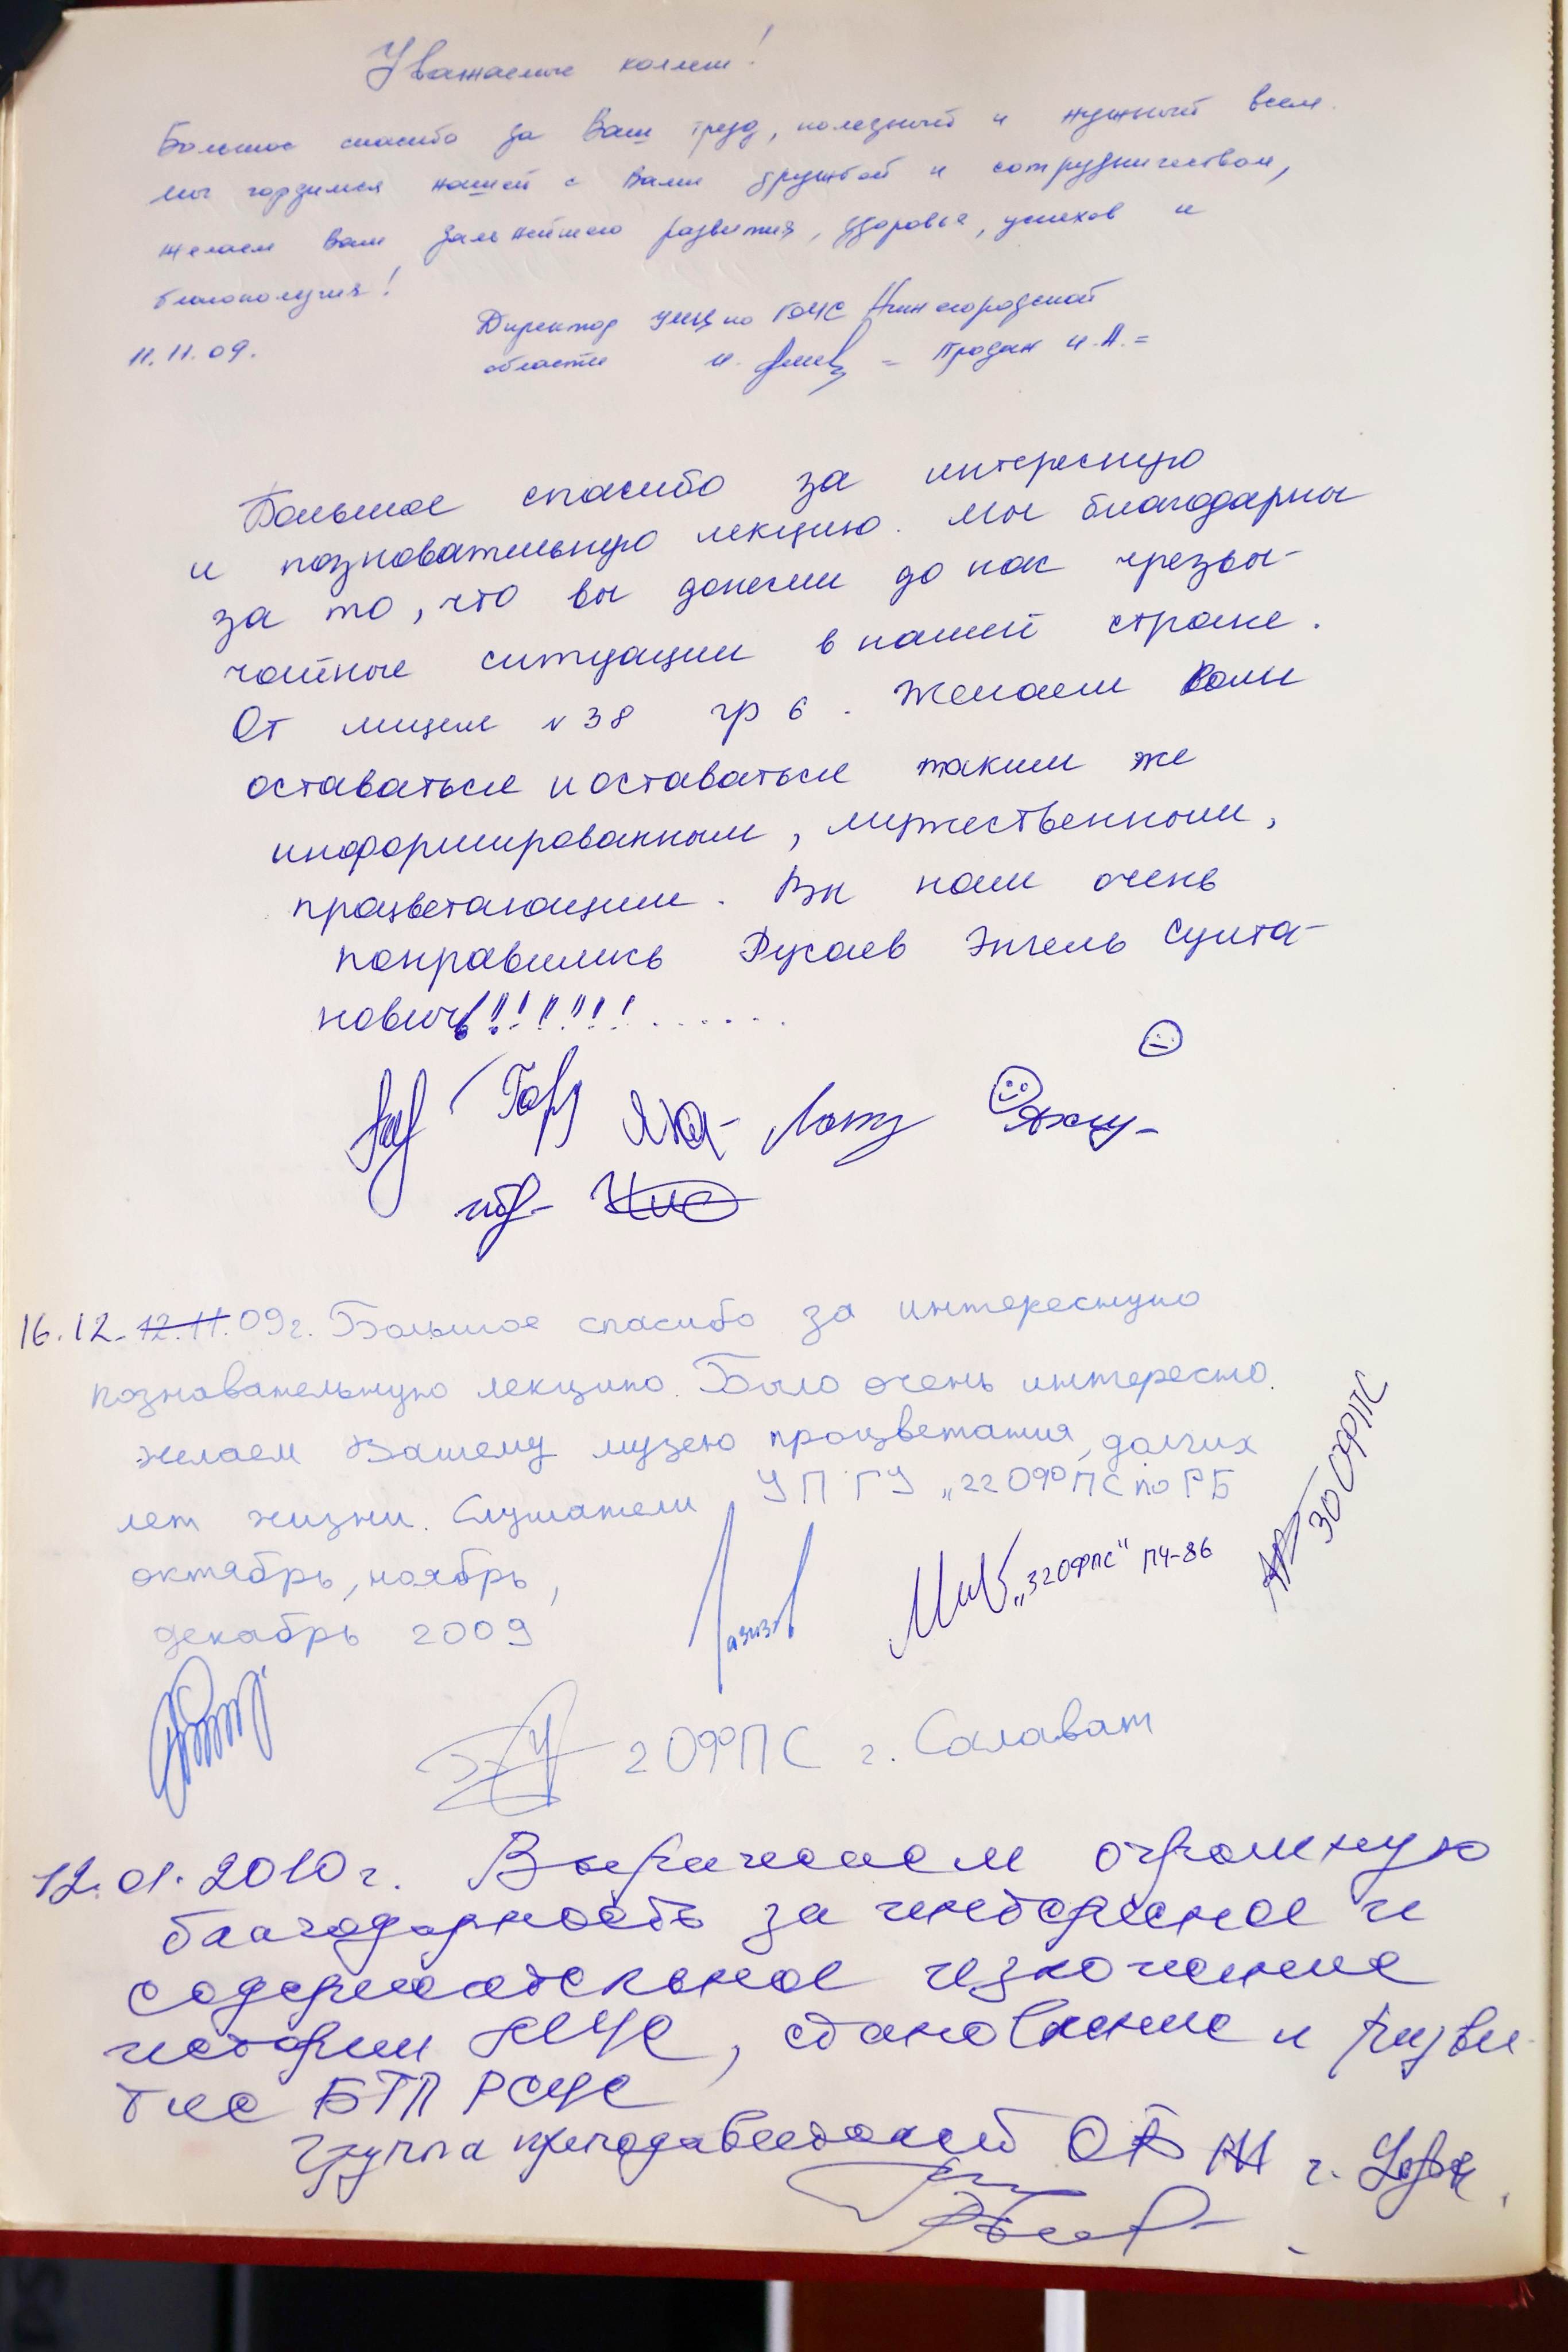 Уважаемые коллеги!
Большое спасибо за Ваш труд, полезный и нужный всем.
Мы гордимся нашей с Вами дружбой и сотрудничеством,
желаем Вам дальнейшего развития, здоровья, успехов и
благополучия!
Директор УМЦ по ГОЧС Нижегородской
11.11.09.
области = Продан И.А. =
Большое спасибо за интересную
и позновательную лекцию. Мы благодарны
за то, что вы донесли до нас чрезвы-
чайные ситуации в нашей стране.
От лицея N38 гр 6. Желаем Вам
оставаться и оставаться таким же
информированным, мужественным,
процветающим. Вы нам очень
понравились Энгель Султа-
нович!!!!!!!!......
16.12. 12.11.09г. Большое спасибо за интересную
познавательную лекцию. Было очень интересно.
Желаем Вашему музею процветания, долгих
лет жизни. Слушатели УП ГУ „22 ОФПС по РБ
октябрь, ноябрь,
декабрь 2009
„32ОФПС“ ПЧ-86
30 ОФПС
2 ОФПС г. Салават
12.01.2010г. Выражаем огромную
благодарность за интересное и
содержательное изложение
истории МЧС, становление и разви-
тие БТП РСЧС
Группа преподавателей ОБЖ г. Уфы.